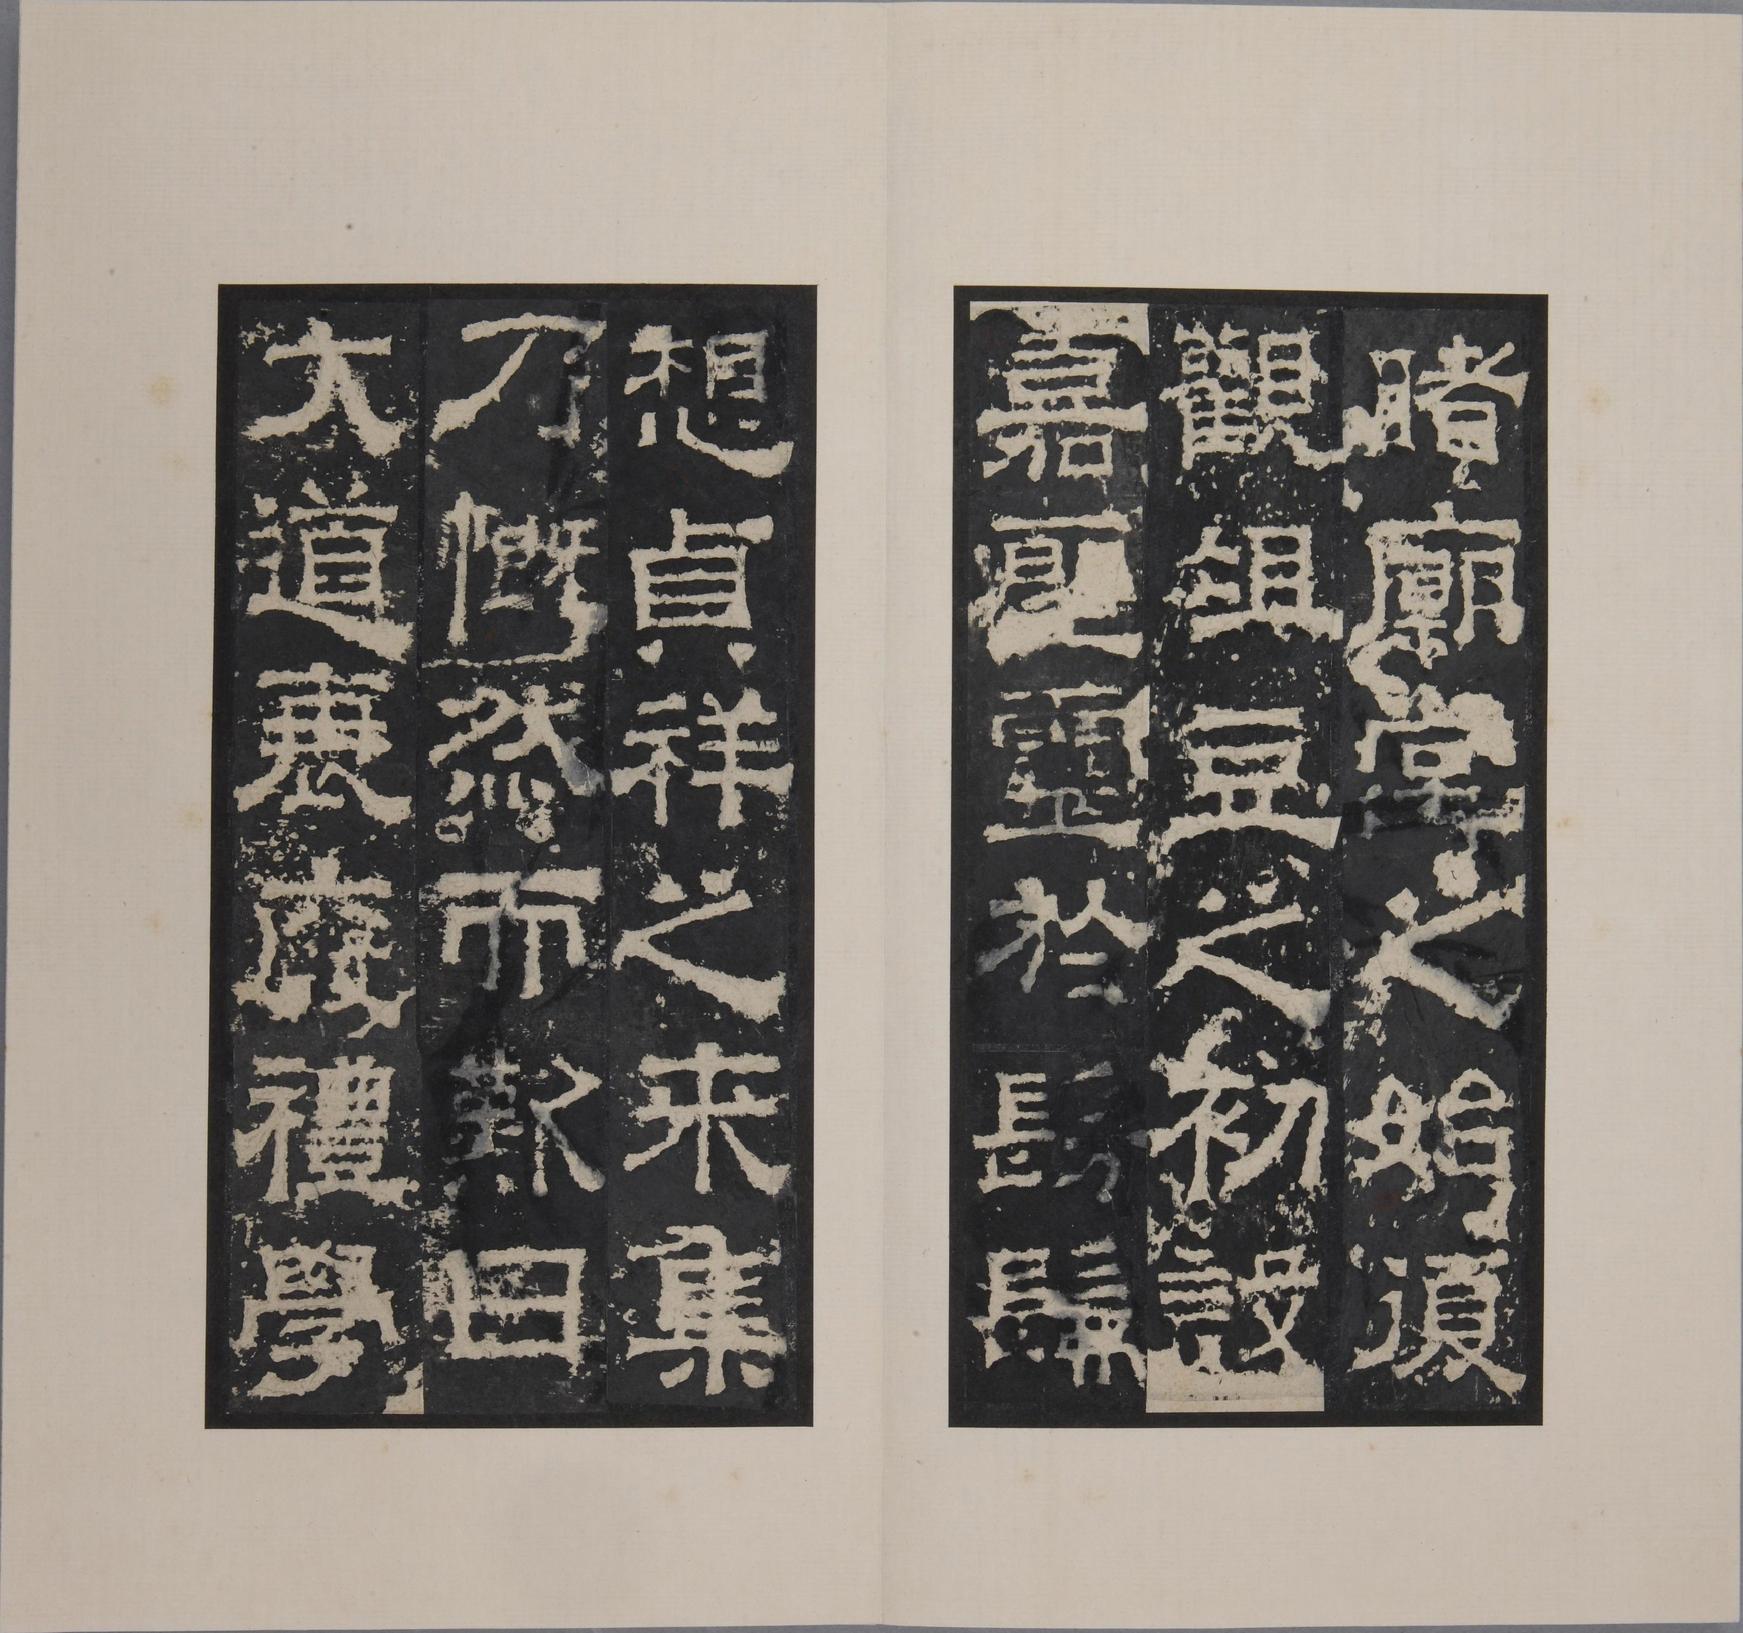 睹廟堂之始復
觀俎豆之初設
嘉聖靈於髣髴
想貞祥之来集
乃慨然而歎曰
大道衰廢禮學